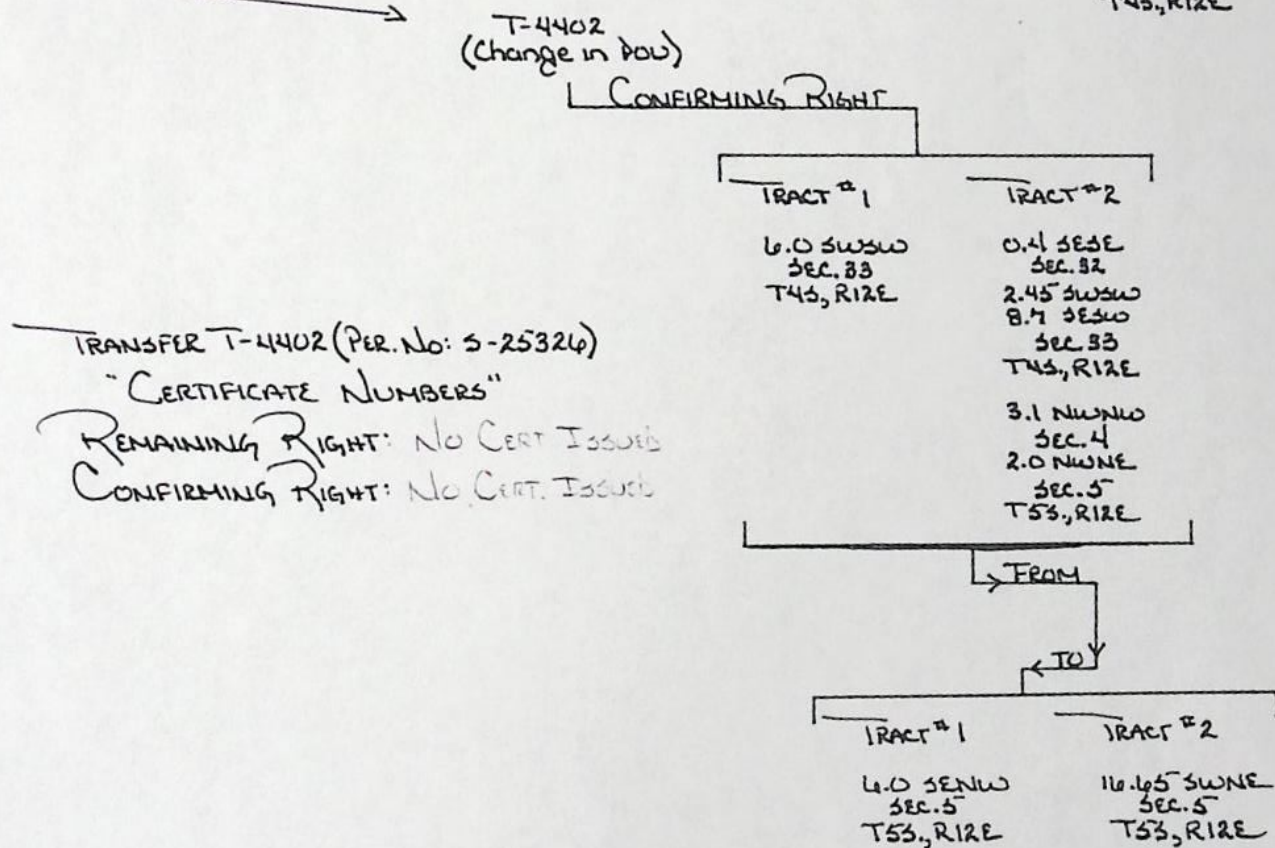 T4S., R12E
T-4402
(Change in POU)
CONFIRMING RIGHT
TRACT #1
6.0 SWSW
SEC. 33
T4S., R12E
TRACT #2
0.4 SESE
SEC. 32
2.45 SWSW
8.7 SESW
SEC. 33
T4S., R12E
3.1 NWNW
SEC. 4
2.0 NWNE
SEC. 5
T5S., R12E
TRANSFER T-4402 (PER. No: S-25326)
"CERTIFICATE NUMBERS"
REMAINING RIGHT: NO CERT ISSUED
CONFIRMING RIGHT: NO CERT. ISSUED
FROM
TO
TRACT #1
6.0 SENW
SEC. 5
T5S., R12E
TRACT #2
16.65 SWNE
SEC. 5
T5S., R12E